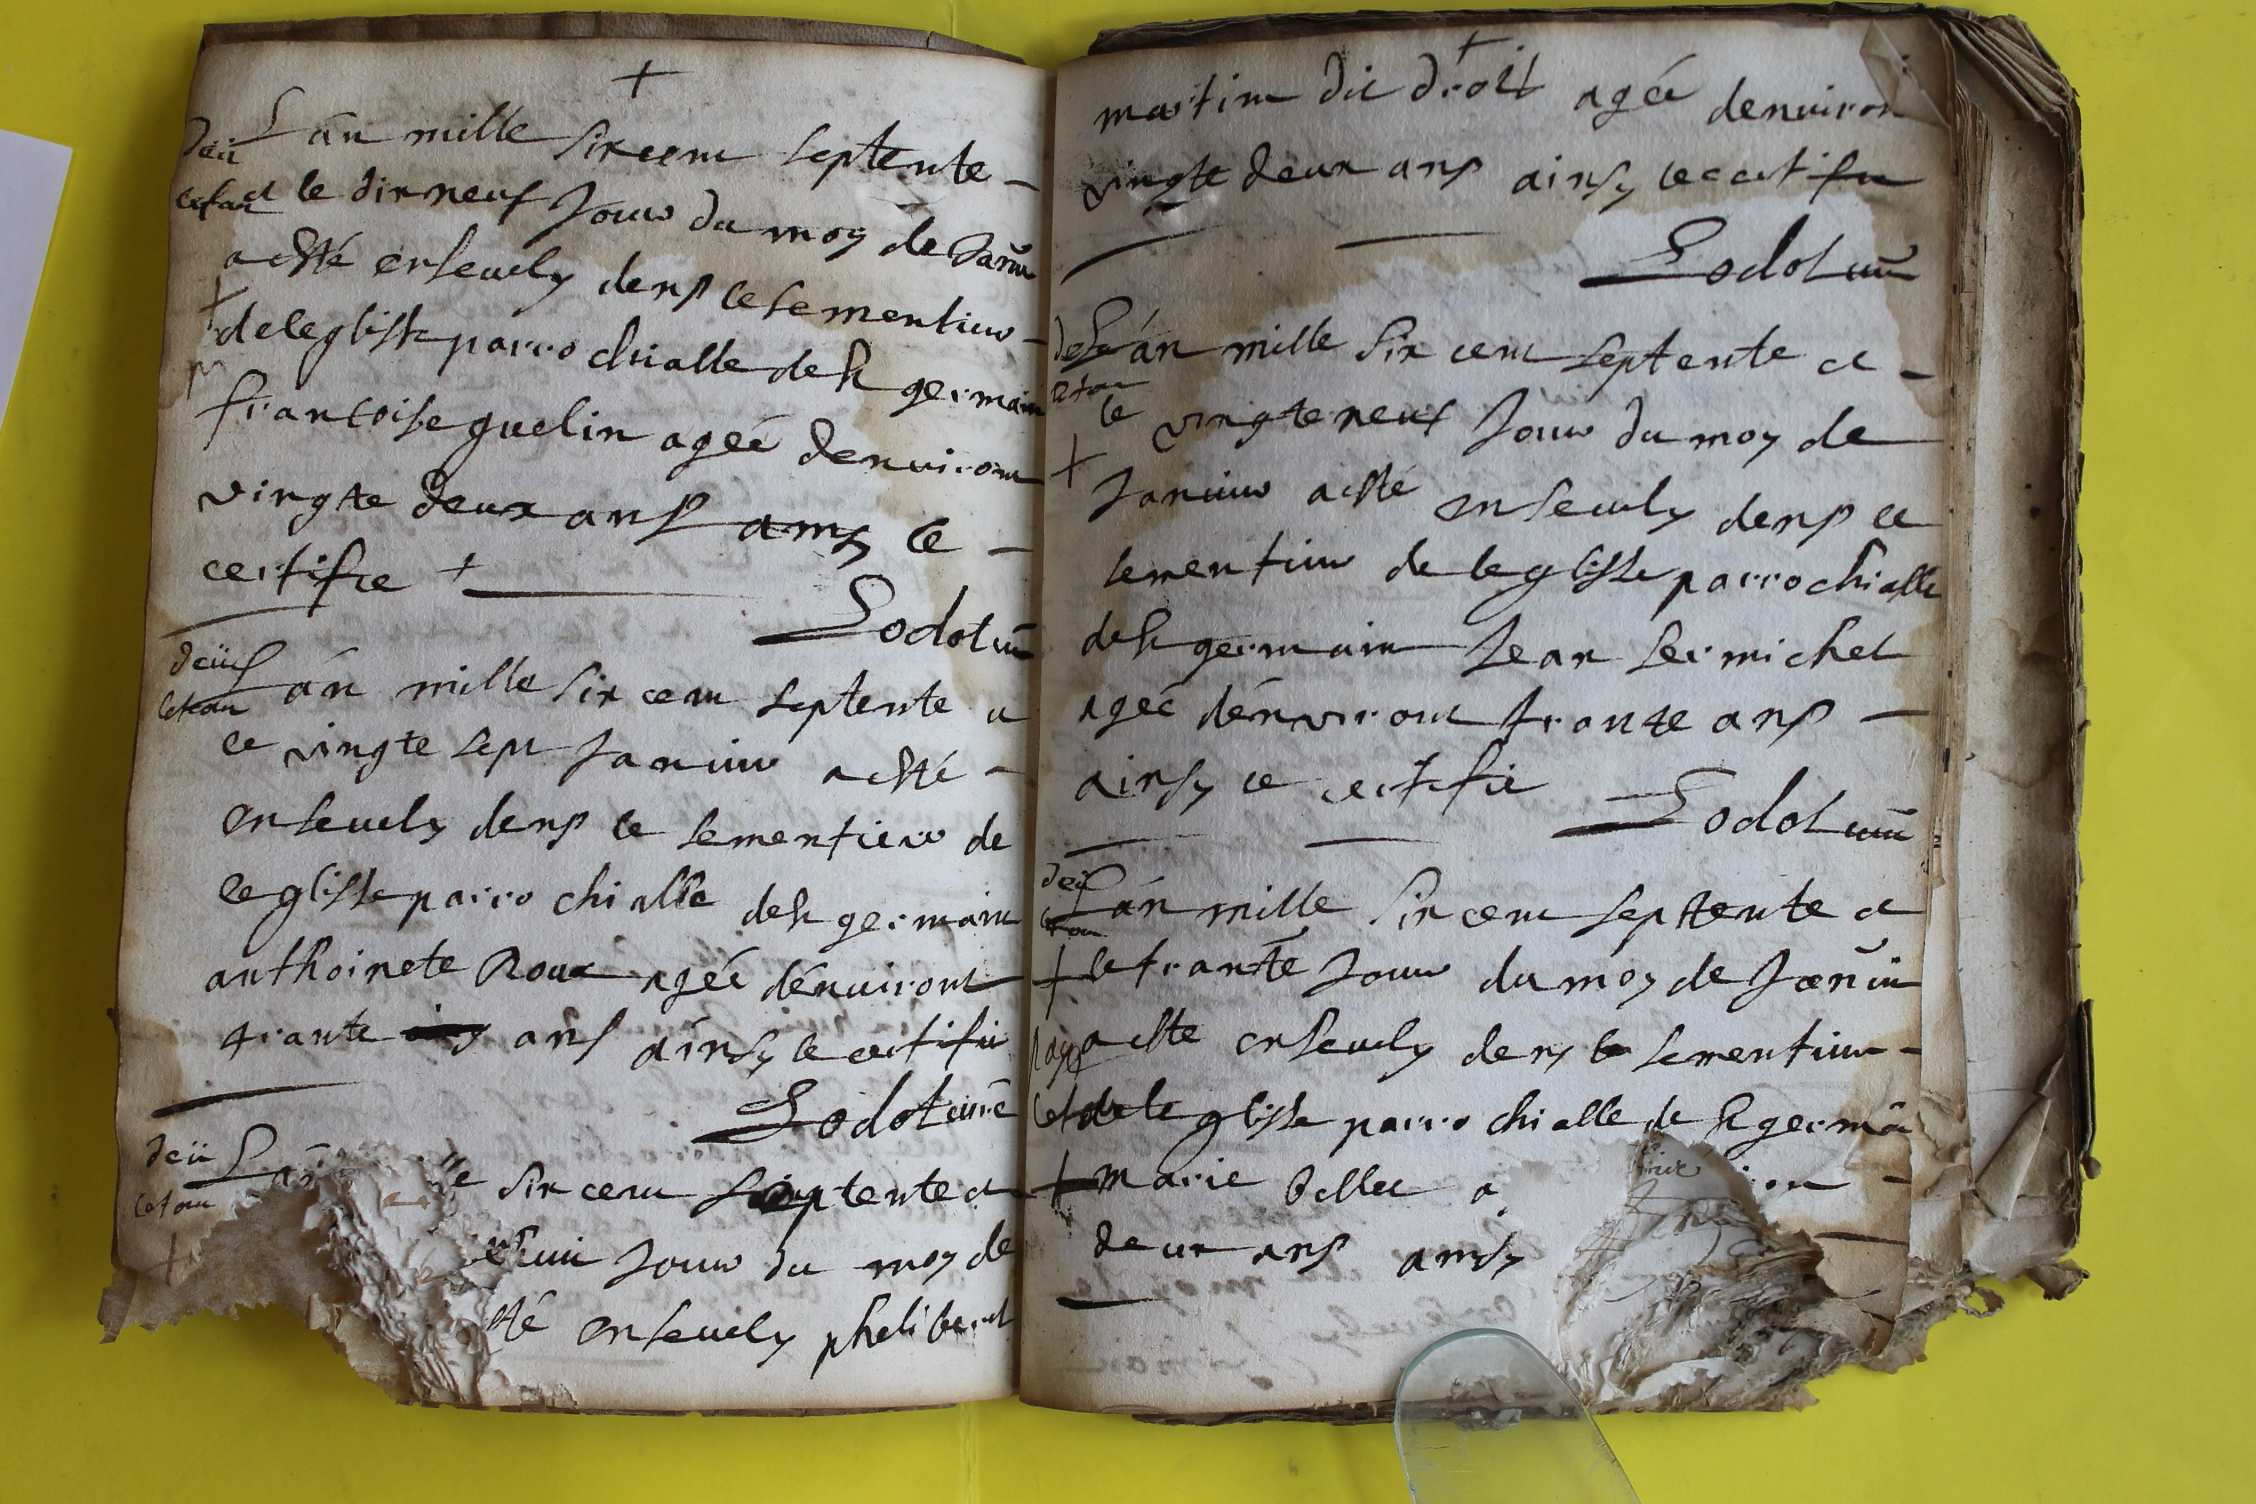 +
Lán mille six cent septente -
et le dix neuf Jour du moy de Janu
a esté ensevely dens le sementiere -
de leglisse parrochialle de st germain
francoise guelin agéé denviront
vingte deux ans ainsy le -
certifie +
Lodot
deü
Lán mille six cent septente et
le vingte sept Janvier a esté -
ensevely dens le sementiere de
leglisse parrochialle de st germain
anthoinete Roux agéé dénviront
trante ans áinsy le certifie
Lodot
deü
six cent septente et
Jour du moy de
sté ensevely phelibert
+
martin dit droit agéé denviron
vingte deux ans ainsy le certifie
Lodot
Lán mille six cent septente et -
le vingte neuf Jour du moy de
Janvier a esté ensevely dens le
sementiere de leglisse parrochialle
de st germain Jean Sermichel
agéé dénviront trante ans -
ainsy le certifie
Lodot
Lán mille six cent septente et
le trante Jour du moy de Janvi
a este ensevely dens le sementiere -
de leglisse parrochialle de st germa
marie a
deux ans ainsy